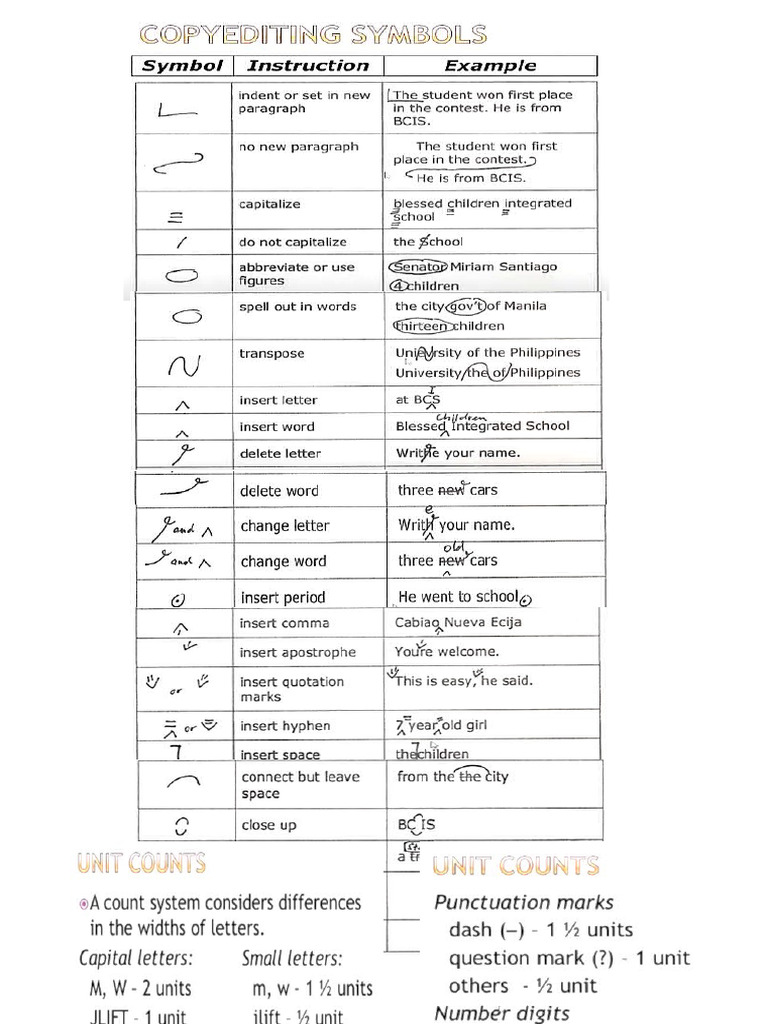 COPYEDITING SYMBOLS
Symbol Instruction Example
indent or set in new paragraph
The student won first place
in the contest. He is from
BCIS.
no new paragraph
The student won first
place in the contest.
He is from BCIS.
capitalize
blessed children integrated
school
do not capitalize
the School
abbreviate or use
figures
Senator Miriam Santiago
4 children
spell out in words
the city gov't of Manila
thirteen children
transpose
Unievrsity of the Philippines
University the of Philippines
insert letter
I
at BCS
insert word
Children
Blessed Integrated School
delete letter
Writhe your name.
delete word
three new cars
and
change letter
e
Writh your name.
and
change word
old
three new cars
insert period
He went to school
insert comma
Cabiao Nueva Ecija
insert apostrophe
Youre welcome.
or
insert quotation
marks
This is easy, he said.
or
insert hyphen
7 year old girl
insert space
thechildren
connect but leave
space
from the the city
close up
BC IS
a
UNIT COUNTS
A count system considers differences
in the widths of letters.
Capital letters: Small letters:
M, W - 2 units m, w - 1 ½ units
JLIFT - 1 unit jlift - ½ unit
UNIT COUNTS
Punctuation marks
dash (–) - 1 ½ units
question mark (?) - 1 unit
others - ½ unit
Number digits